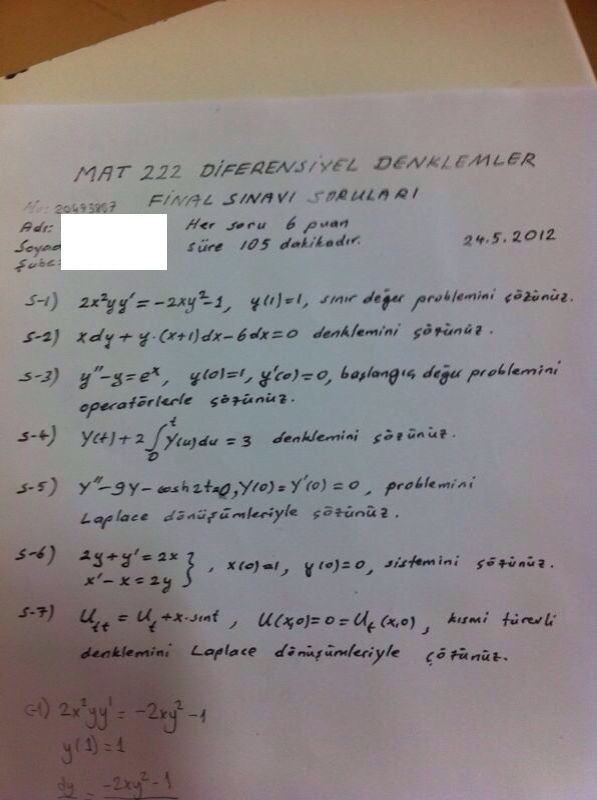 MAT 222 DİFERENSİYEL DENKLEMLER
FİNAL SINAVI SORULARI
No: 20493867
Adı: Her soru 6 puan
Soyad süre 105 dakikadır. 24.5.2012
Şube:
S-1) 2x²yy' = -2xy²-1, y(1)=1, sınır değer problemini çözünüz.
S-2) xdy + y.(x+1)dx-6dx=0 denklemini çözünüz.
S-3) y''-y=eˣ, y(0)=1, y'(0)=0, başlangıç değer problemini
operatörlerle çözünüz.
S-4) Y(t)+2∫₀ᵗY(u)du = 3 denklemini çözünüz.
S-5) Y''-9Y-cosh2t=0, Y(0)=Y'(0)=0, problemini
Laplace dönüşümleriyle çözünüz.
S-6) 2y+y'=2x
x'-x=2y }, x(0)=1, y(0)=0, sistemini çözünüz.
S-7) Uₜₜ = Uₜ+x.sint, U(x,0)=0=Uₜ(x,0), kısmi türevli
denklemini Laplace dönüşümleriyle çözünüz.
C-1) 2x²yy' = -2xy²-1
y(1)=1
dy = -2xy²-1